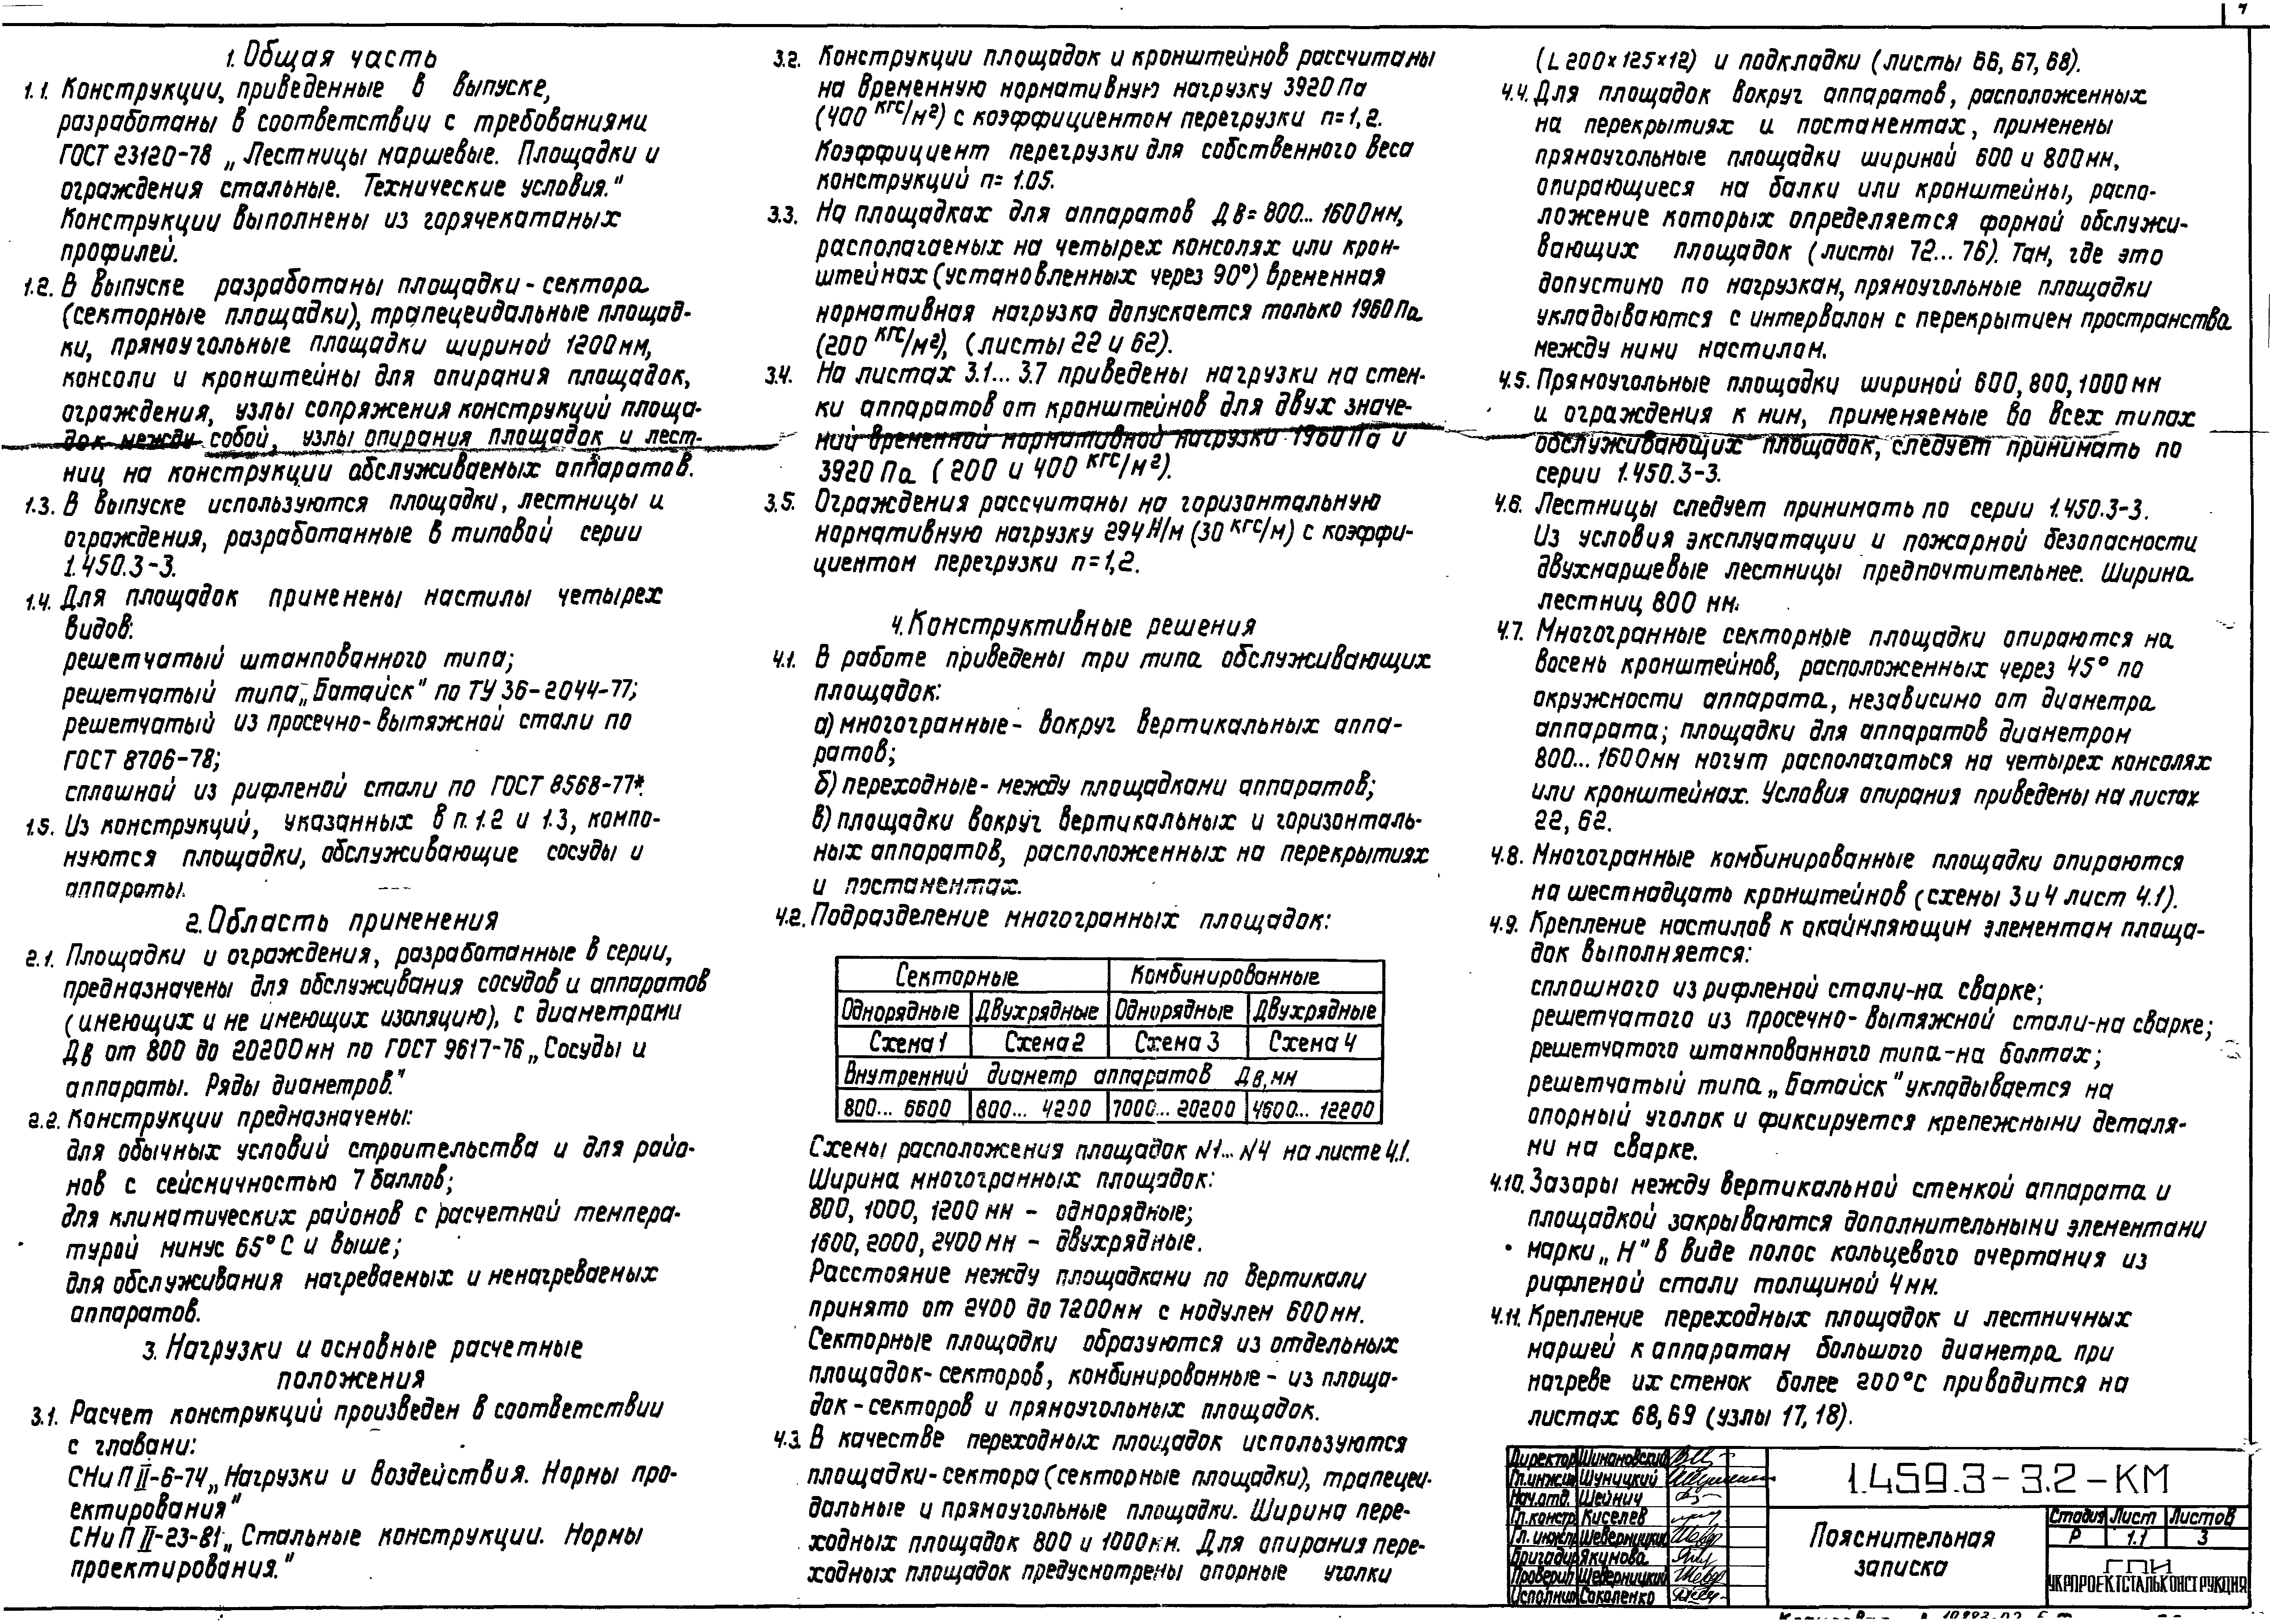 1. Общая часть
1.1. Конструкции, приведенные в выпуске,
разработаны в соответствии с требованиями
ГОСТ 23120-78 „Лестницы маршевые. Площадки и
ограждения стальные. Технические условия."
Конструкции выполнены из горячекатаных
профилей.
1.2. В выпуске разработаны площадки-сектора
(секторные площадки), трапецеидальные площад-
ки, прямоугольные площадки шириной 1200мм,
консоли и кронштейны для опирания площадок,
ограждения, узлы сопряжения конструкций площа-
док между собой, узлы опирания площадок и лест-
ниц на конструкции обслуживаемых аппаратов.
1.3. В выпуске используются площадки, лестницы и
ограждения, разработанные в типовой серии
1.450.3-3.
1.4. Для площадок применены настилы четырех
видов:
решетчатый штампованного типа;
решетчатый типа „Батайск" по ТУ 36-2044-77;
решетчатый из просечно-вытяжной стали по
ГОСТ 8706-78;
сплошной из рифленой стали по ГОСТ 8568-77*.
1.5. Из конструкций, указанных в п. 1.2 и 1.3, компо-
нуются площадки, обслуживающие сосуды и
аппараты.
2. Область применения
2.1. Площадки и ограждения, разработанные в серии,
предназначены для обслуживания сосудов и аппаратов
(имеющих и не имеющих изоляцию), с диаметрами
Дв от 800 до 20200мм по ГОСТ 9617-76 „Сосуды и
аппараты. Ряды диаметров."
2.2. Конструкции предназначены:
для обычных условий строительства и для райо-
нов с сейсмичностью 7 баллов;
для климатических районов с расчетной темпера-
турой минус 65°С и выше;
для обслуживания нагреваемых и ненагреваемых
аппаратов.
3. Нагрузки и основные расчетные
положения
3.1. Расчет конструкций произведен в соответствии
с главами:
СНиП II-6-74 „Нагрузки и воздействия. Нормы про-
ектирования"
СНиП II-23-81 „Стальные конструкции. Нормы
проектирования."
3.2. Конструкции площадок и кронштейнов рассчитаны
на временную нормативную нагрузку 3920 Па
(400 кгс/м²) с коэффициентом перегрузки n=1,2.
Коэффициент перегрузки для собственного веса
конструкций n= 1.05.
3.3. На площадках для аппаратов Дв= 800... 1600мм,
располагаемых на четырех консолях или крон-
штейнах (установленных через 90°) временная
нормативная нагрузка допускается только 1960 Па
(200 кгс/м²), (листы 22 и 62).
3.4. На листах 3.1... 3.7 приведены нагрузки на стен-
ки аппаратов от кронштейнов для двух значе-
ний временной нормативной нагрузки 1960 Па и
3920 Па (200 и 400 кгс/м²).
3.5. Ограждения рассчитаны на горизонтальную
нормативную нагрузку 294 Н/м (30 кгс/м) с коэффи-
циентом перегрузки n=1,2.
4. Конструктивные решения
4.1. В работе приведены три типа обслуживающих
площадок:
а) многогранные- вокруг вертикальных аппа-
ратов;
б) переходные- между площадками аппаратов;
в) площадки вокруг вертикальных и горизонталь-
ных аппаратов, расположенных на перекрытиях
и постаментах.
4.2. Подразделение многогранных площадок:
Секторные Комбинированные
Однорядные Двухрядные Однорядные Двухрядные
Схема 1 Схема 2 Схема 3 Схема 4
Внутренний диаметр аппаратов Дв, мм
800... 6600 800... 4200 7000... 20200 4600... 12200
Схемы расположения площадок N1... N4 на листе 4.1.
Ширина многогранных площадок:
800, 1000, 1200 мм - однорядные;
1600, 2000, 2400 мм - двухрядные.
Расстояние между площадками по вертикали
принято от 2400 до 7200мм с модулем 600мм.
Секторные площадки образуются из отдельных
площадок-секторов, комбинированные - из площа-
док-секторов и прямоугольных площадок.
4.3 В качестве переходных площадок используются
площадки-сектора (секторные площадки), трапецеи-
дальные и прямоугольные площадки. Ширина пере-
ходных площадок 800 и 1000мм. Для опирания пере-
ходных площадок предусмотрены опорные уголки
(L 200×125×12) и подкладки (листы 66, 67, 68).
4.4. Для площадок вокруг аппаратов, расположенных
на перекрытиях и постаментах, применены
прямоугольные площадки шириной 600 и 800мм,
опирающиеся на балки или кронштейны, распо-
ложение которых определяется формой обслужи-
вающих площадок (листы 72... 76). Там, где это
допустимо по нагрузкам, прямоугольные площадки
укладываются с интервалом с перекрытием пространства
между ними настилом.
4.5. Прямоугольные площадки шириной 600, 800, 1000 мм
и ограждения к ним, применяемые во всех типах
обслуживающих площадок, следует принимать по
серии 1.450.3-3.
4.6. Лестницы следует принимать по серии 1.450.3-3.
Из условия эксплуатации и пожарной безопасности
двухмаршевые лестницы предпочтительнее. Ширина
лестниц 800 мм.
4.7. Многогранные секторные площадки опираются на
восемь кронштейнов, расположенных через 45° по
окружности аппарата, независимо от диаметра
аппарата; площадки для аппаратов диаметром
800... 1600мм могут располагаться на четырех консолях
или кронштейнах. Условия опирания приведены на листах
22, 62.
4.8. Многогранные комбинированные площадки опираются
на шестнадцать кронштейнов (схемы 3 и 4 лист 4.1).
4.9. Крепление настилов к окаймляющим элементам площа-
док выполняется:
сплошного из рифленой стали-на сварке;
решетчатого из просечно-вытяжной стали-на сварке;
решетчатого штампованного типа-на болтах;
решетчатый типа „Батайск" укладывается на
опорный уголок и фиксируется крепежными деталя-
ми на сварке.
4.10. Зазоры между вертикальной стенкой аппарата и
площадкой закрываются дополнительными элементами
марки „Н" в виде полос кольцевого очертания из
рифленой стали толщиной 4мм.
4.11. Крепление переходных площадок и лестничных
маршей к аппаратам большого диаметра при
нагреве их стенок более 200°С приводится на
листах 68, 69 (узлы 17, 18).
Директор Шимановский
Гл.инж.ин Шуницкий
Нач.отд. Шейнич
Гл.констр Киселев
Гл. инж.пр Шеверницкий
Бригадир Якунова
Проверил Шеверницкий
Исполнил Соколенко
1.459.3-3.2-КМ
Пояснительная
записка
Стадия Лист Листов
Р 1.1 3
ГПИ
УКРПРОЕКТСТАЛЬКОНСТРУКЦИЯ